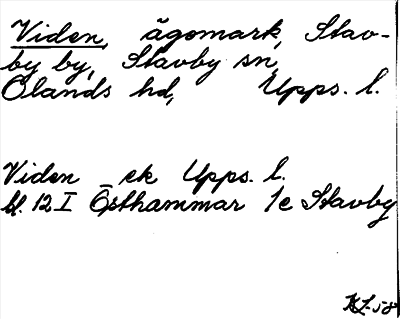 Viden, ägomark, Stav-
by by, Stavby sn,
Olands hd, Upps. l.
Viden ek Upps. l.
bl. 12 I Östhammar 1e Stavby